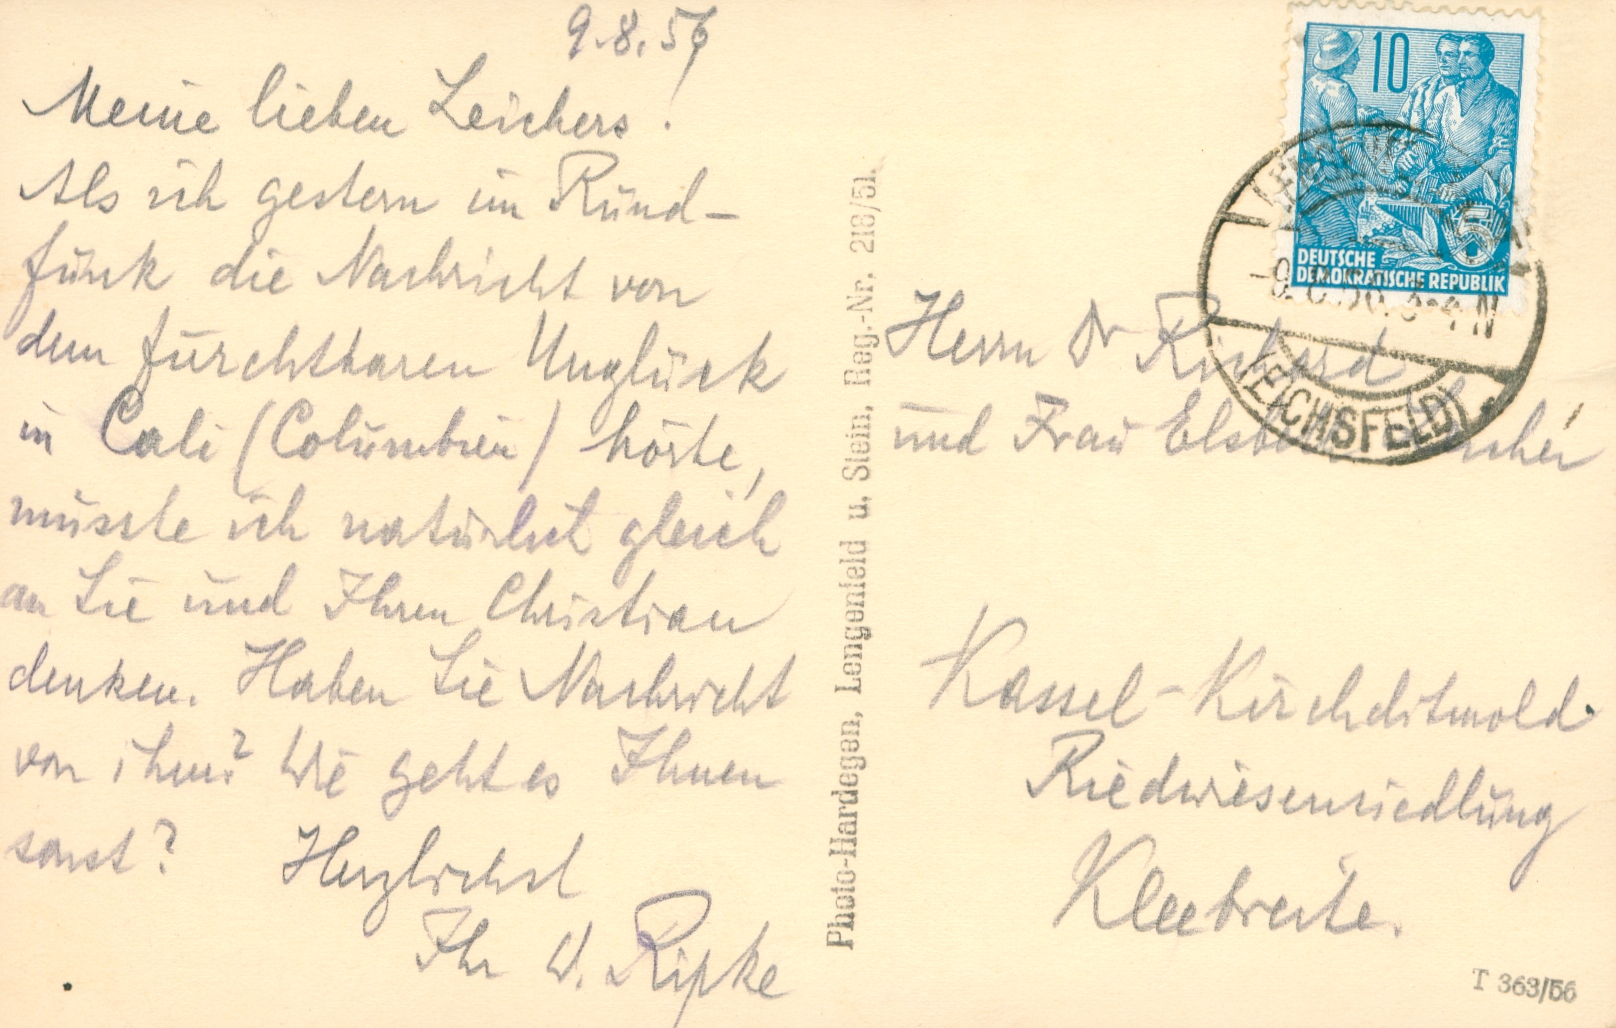 9.8.56
Meine lieben Leichers!
Als ich gestern im Rund-
funk die Nachricht von
dem furchtbaren Unglück
in Cali (Columbien) hörte,
musste ich natürlich gleich
an Sie und Ihren Christian
denken. Haben Sie Nachricht
von ihm? Wie geht es Ihnen
sonst? Herzlichst
Ihr W. Ripke
Photo-Hardegen, Lengenfeld u. Stein, Reg.-Nr. 218/51.
10
5
DEUTSCHE
DEMOKRATISCHE REPUBLIK
(EICHSFELD)
Herrn Dr Richard
und Frau
Kassel-Kirchditmold
Riedwiesensiedlung
Kleebreite.
T 363/56